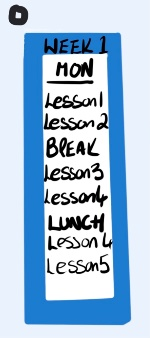 WEEK 1
MON
Lesson1
Lesson2
BREAK
Lesson3
Lesson4
LUNCH
Lesson4
Lesson5